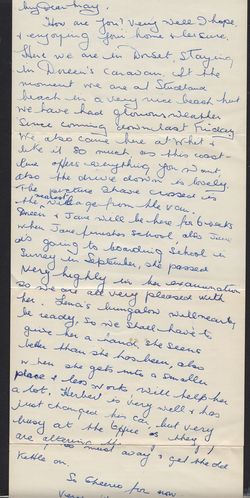 My Dear May,
How are you? Very well I hope,
& enjoying your home & leisure.
Here we are in Dorset, staying
in Doreen's caravan. At the
moment we are at Studland
beach in a very nice beach hut
we have had glorious weather
since coming down last Friday.
We also came here at Whit &
like it so much as this coast
line offers everything you want,
also the drive down is lovely.
The picture I have crossed is
the nearest village from the van.
Doreen & Jane will be here for 6 weeks
when Jane finishes school, also Jane
is going to boarding school in
Surrey in September, she passed
very highly in her examination
so we are all very pleased with
her. Lena's bungalow will nearly
be ready, so we shall have to
give her a hand, she seems
better than she has been, also
when she gets into a smaller
place & less work will help her
a lot. Herbert is very well & has
just changed her car, but very
busy at the office as they
are altering it. must away & get the old
Kettle on.
So Cheerio for now